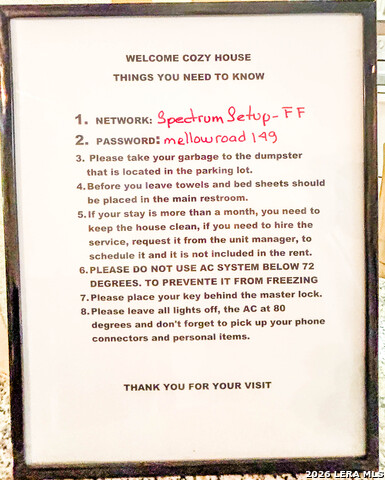 WELCOME COZY HOUSE
THINGS YOU NEED TO KNOW
1. NETWORK: SpectrumSetup-FF
2. PASSWORD: mellowroad149
3. Please take your garbage to the dumpster
that is located in the parking lot.
4.Before you leave towels and bed sheets should
be placed in the main restroom.
5.If your stay is more than a month, you need to
keep the house clean, if you need to hire the
service, request it from the unit manager, to
schedule it and it is not included in the rent.
6.PLEASE DO NOT USE AC SYSTEM BELOW 72
DEGREES. TO PREVENTE IT FROM FREEZING
7.Please place your key behind the master lock.
8.Please leave all lights off, the AC at 80
degrees and don't forget to pick up your phone
connectors and personal items.
THANK YOU FOR YOUR VISIT
2026 LERA MLS